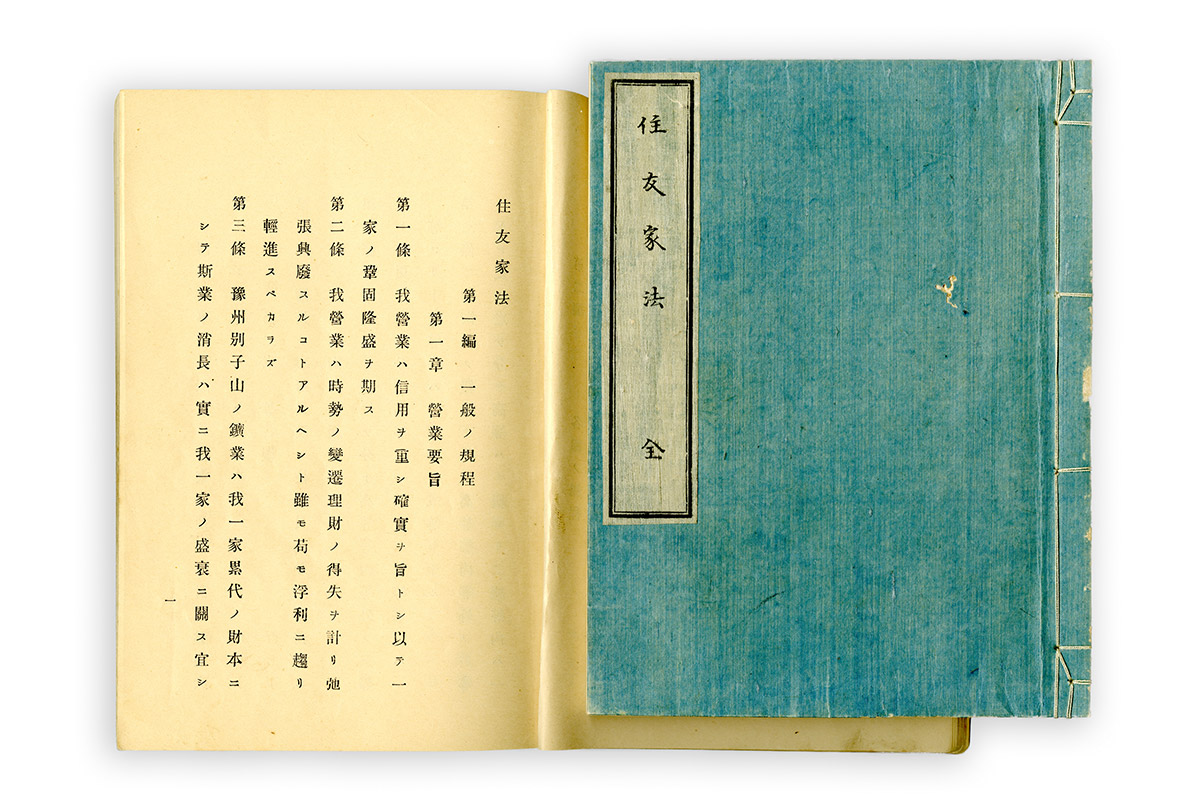 住友家法 全
住友家法
第一編 一般ノ規程
第一章 營業要旨
第一條 我營業ハ信用ヲ重シ確實ヲ旨トシ以テ一
家ノ鞏固隆盛ヲ期ス
第二條 我營業ハ時勢ノ變遷理財ノ得失ヲ計リ弛
張興廢スルコトアルヘシト雖モ苟モ浮利ニ趨リ
輕進スベカラズ
第三條 豫州別子山ノ鑛業ハ我一家累代ノ財本ニ
シテ斯業ノ消長ハ實ニ我一家ノ盛衰ニ關ス宜シ
一